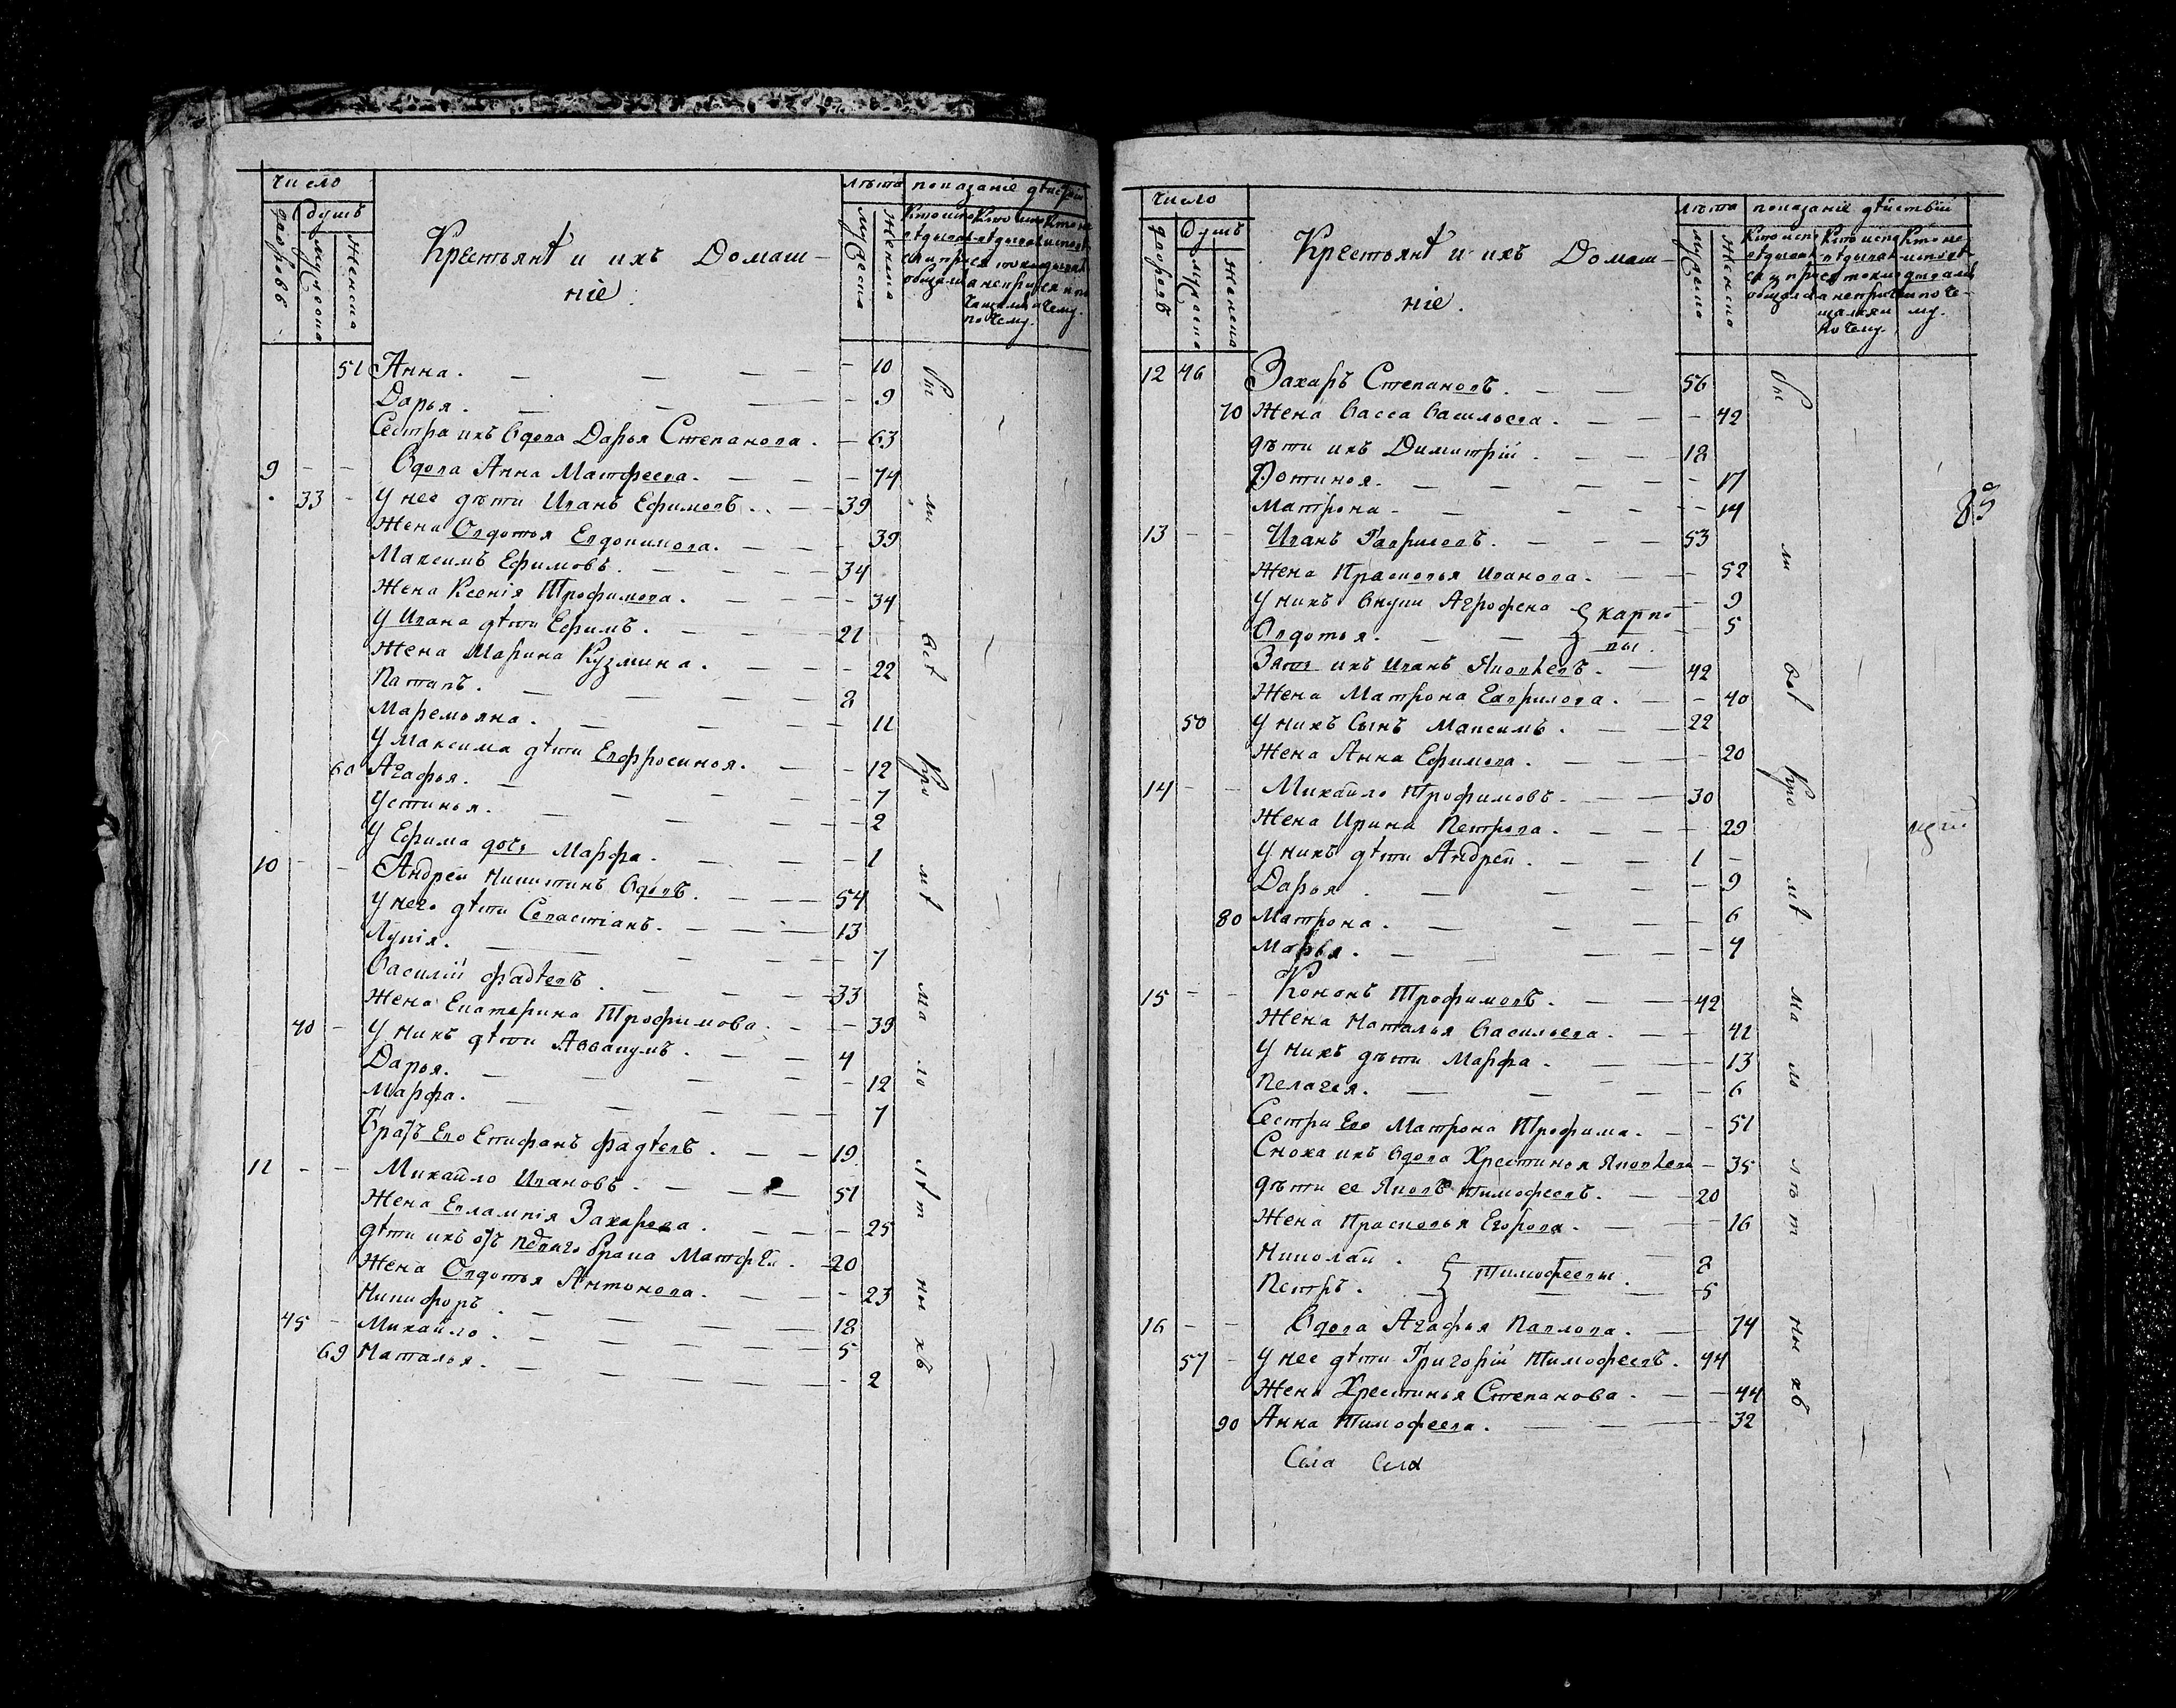 число
лѣта показаніе дѣйствій
дворовъ
душъ
мужеска
Женска
Крестьянѣ и ихъ Домаш-
ніе.
мужеска
Женска
51 Анна. — — — 10
Дарья. — — — 9
Сестра ихъ вдова Дарья Степанова. — 63
9 — — Вдова Анна Матфеева. — — — 74
33 — У нее дѣти Иванъ Ефимовъ. — — 39
Жена Овдотья Евдокимова. — — — 39
Максимъ Ефимовъ. — — — 34
Жена Ксенія Трофимова. — — — 34
У Ивана дѣти Ефимъ. — — — 21
Жена Марина Кузмина. — — — 22
Патапъ. — — — 8
Маремьяна. — — — 11
У Максима дѣти Евфросинья. — — 12
60 Агафья. — — — 7
Устинья. — — — 2
У Ефима дочь Марфа. — — — 1
10 — — Андрей Никитинъ вдовъ. — — — 54
У него дѣти Севастіанъ. — — — 13
Лукія. — — — 7
Василій Фадѣевъ. — — — 33
Жена Екатерина Трофимова. — — 39
40 — У нихъ дѣти Аввакумъ. — — 4
Дарья. — — — 12
Марфа. — — — 7
Братъ Его Епифанъ Фадѣевъ. — — 19
11 — — Михайло Ивановъ. — — — 51
Жена Евлампія Захарова. — — — 25
дѣти ихъ отъ перваго брака Матфѣй. — 20
Жена Овдотья Антонова. — — — 23
Никифоръ. — — — 18
45 — Михайло. — — — 5
69 Наталья. — — — 2
бы
ли
всѣ
кро
мѣ
ма
ло
лѣт
ны
хъ
число
лѣта показаніе дѣйствіи
дворовъ
душъ
мужеска
Женска
Крестьянѣ и ихъ Домаш-
ніе.
мужеска
Женска
12 46 Захаръ Степановъ. — — 56
70 Жена Васса Васильева. — — — 42
дѣти ихъ Димитрій. — — — 18
Фотинья. — — — 17
Матрона. — — — 14
85
13 — — Иванъ Гавриловъ. — — — 53
Жена Прасковья Иванова. — — 52
У нихъ внуки Агрофена } Карпо — 9
Овдотья. — — } вы. — 5
Зять ихъ Иванъ Яковлевъ. — 42
Жена Матрона Гаврилова. — — 40
50 У нихъ Сынъ Максимъ. — — 22
Жена Анна Ефимова. — — — 20
14 — — Михайло Трофимовъ. — — 30
Жена Ирина Петрова. — — — 29
У нихъ дѣти Андрей. — — 1 —
Дарья. — — — 9
80 Матрона. — — — 6
Марья. — — — 4
15 — — Кононъ Трофимовъ. — — 42
Жена Наталья Васильева. — — 41
У нихъ дѣти Марфа. — — — 13
Пелагея. — — — 6
Сестри Его Матрона Трофима. — — 51
Сноха ихъ вдова Хрестинья Яковлева — 35
дѣти ее Яковъ Тимофеевъ. — — 20
Жена Прасковья Егорова. — — 16
Николай. } Тимофеевы. — 8
Петръ. } — — 5
16 — — Вдова Агафья Павлова. — 74
57 — У нее дѣти Григорій Тимофеевъ. 44
Жена Хрестинья Степанова. — — 44
90 Анна Тимофеева. — — — 32
бы
ли
всѣ
кро
мѣ
ма
ло
лѣт
ны
хъ
Села Села